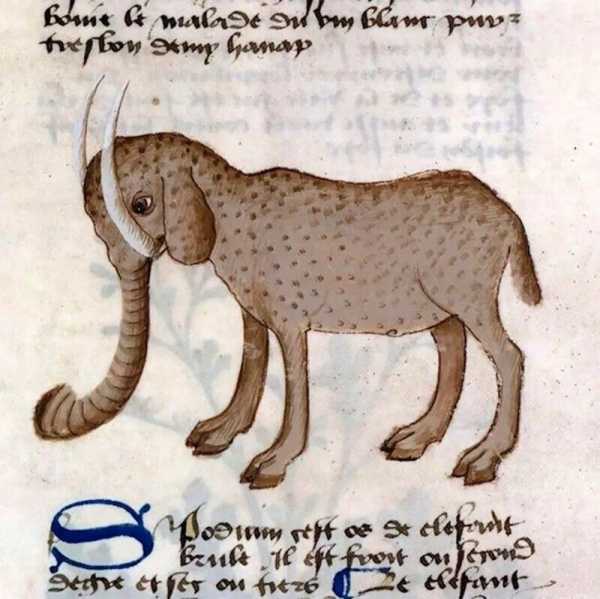 boire le malade du vin blanc puy-
tresbon demy hanap
Spodium cest os de elefant
brule. Il est froit ou second
degre et sec ou tiers Le elefant